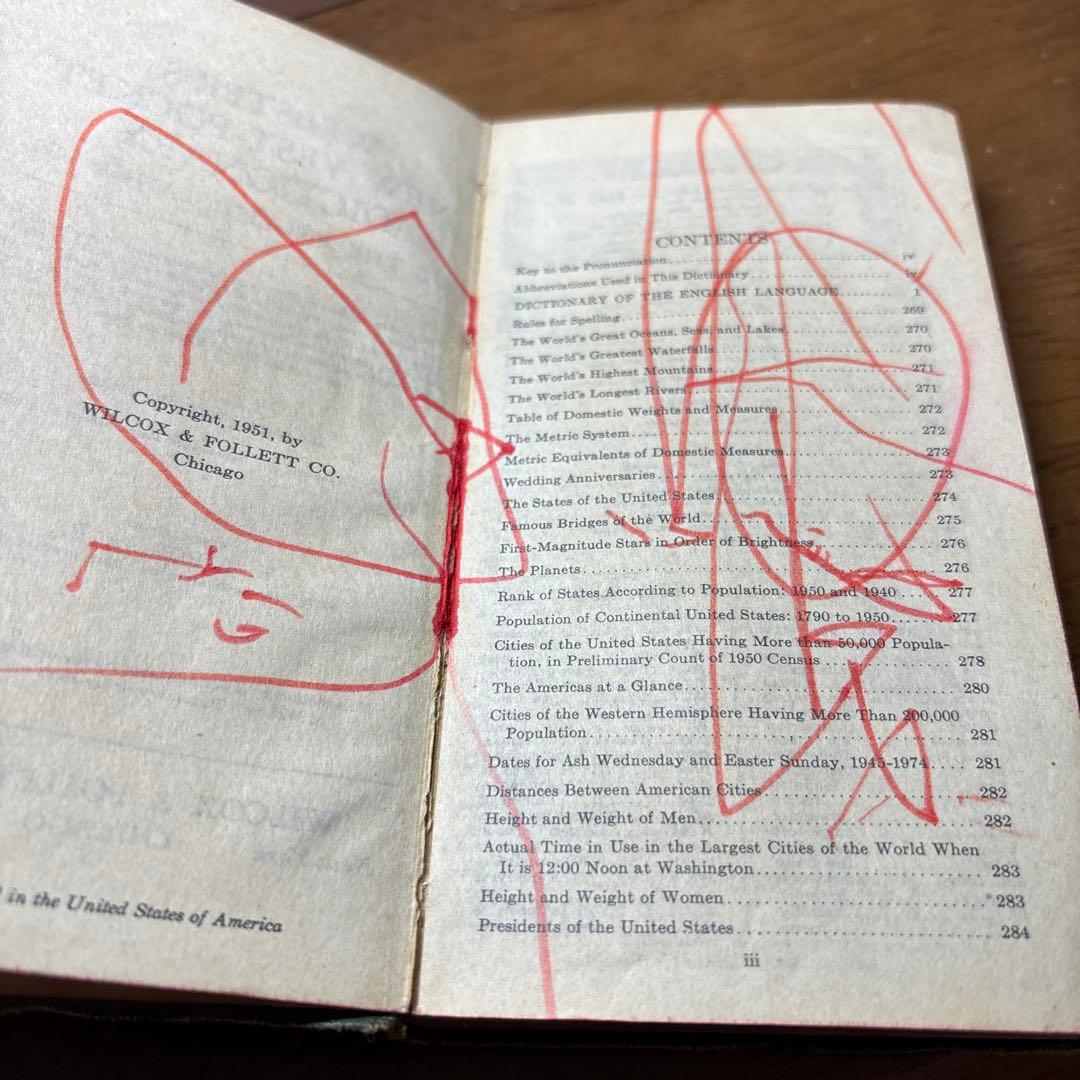 Copyright, 1951, by
WILCOX & FOLLETT CO.
Chicago
in the United States of America
CONTENTS
Key to the Pronunciation.................... iv
Abbreviations Used in This Dictionary.................... iv
DICTIONARY OF THE ENGLISH LANGUAGE.......... 1
Rules for Spelling.................... 269
The World's Great Oceans, Seas, and Lakes.................... 270
The World's Greatest Waterfalls.................... 270
The World's Highest Mountains.................... 271
The World's Longest Rivers.................... 271
Table of Domestic Weights and Measures.................... 272
The Metric System.................... 272
Metric Equivalents of Domestic Measures.................... 273
Wedding Anniversaries.................... 273
The States of the United States.................... 274
Famous Bridges of the World.................... 275
First-Magnitude Stars in Order of Brightness.................... 276
The Planets.................... 276
Rank of States According to Population: 1950 and 1940 ..... 277
Population of Continental United States: 1790 to 1950........ 277
Cities of the United States Having More than 50,000 Popula-
tion, in Preliminary Count of 1950 Census.................... 278
The Americas at a Glance.................... 280
Cities of the Western Hemisphere Having More Than 200,000
Population.................... 281
Dates for Ash Wednesday and Easter Sunday, 1945-1974.... 281
Distances Between American Cities.................... 282
Height and Weight of Men.................... 282
Actual Time in Use in the Largest Cities of the World When
It is 12:00 Noon at Washington.................... 283
Height and Weight of Women.................... 283
Presidents of the United States.................... 284
iii